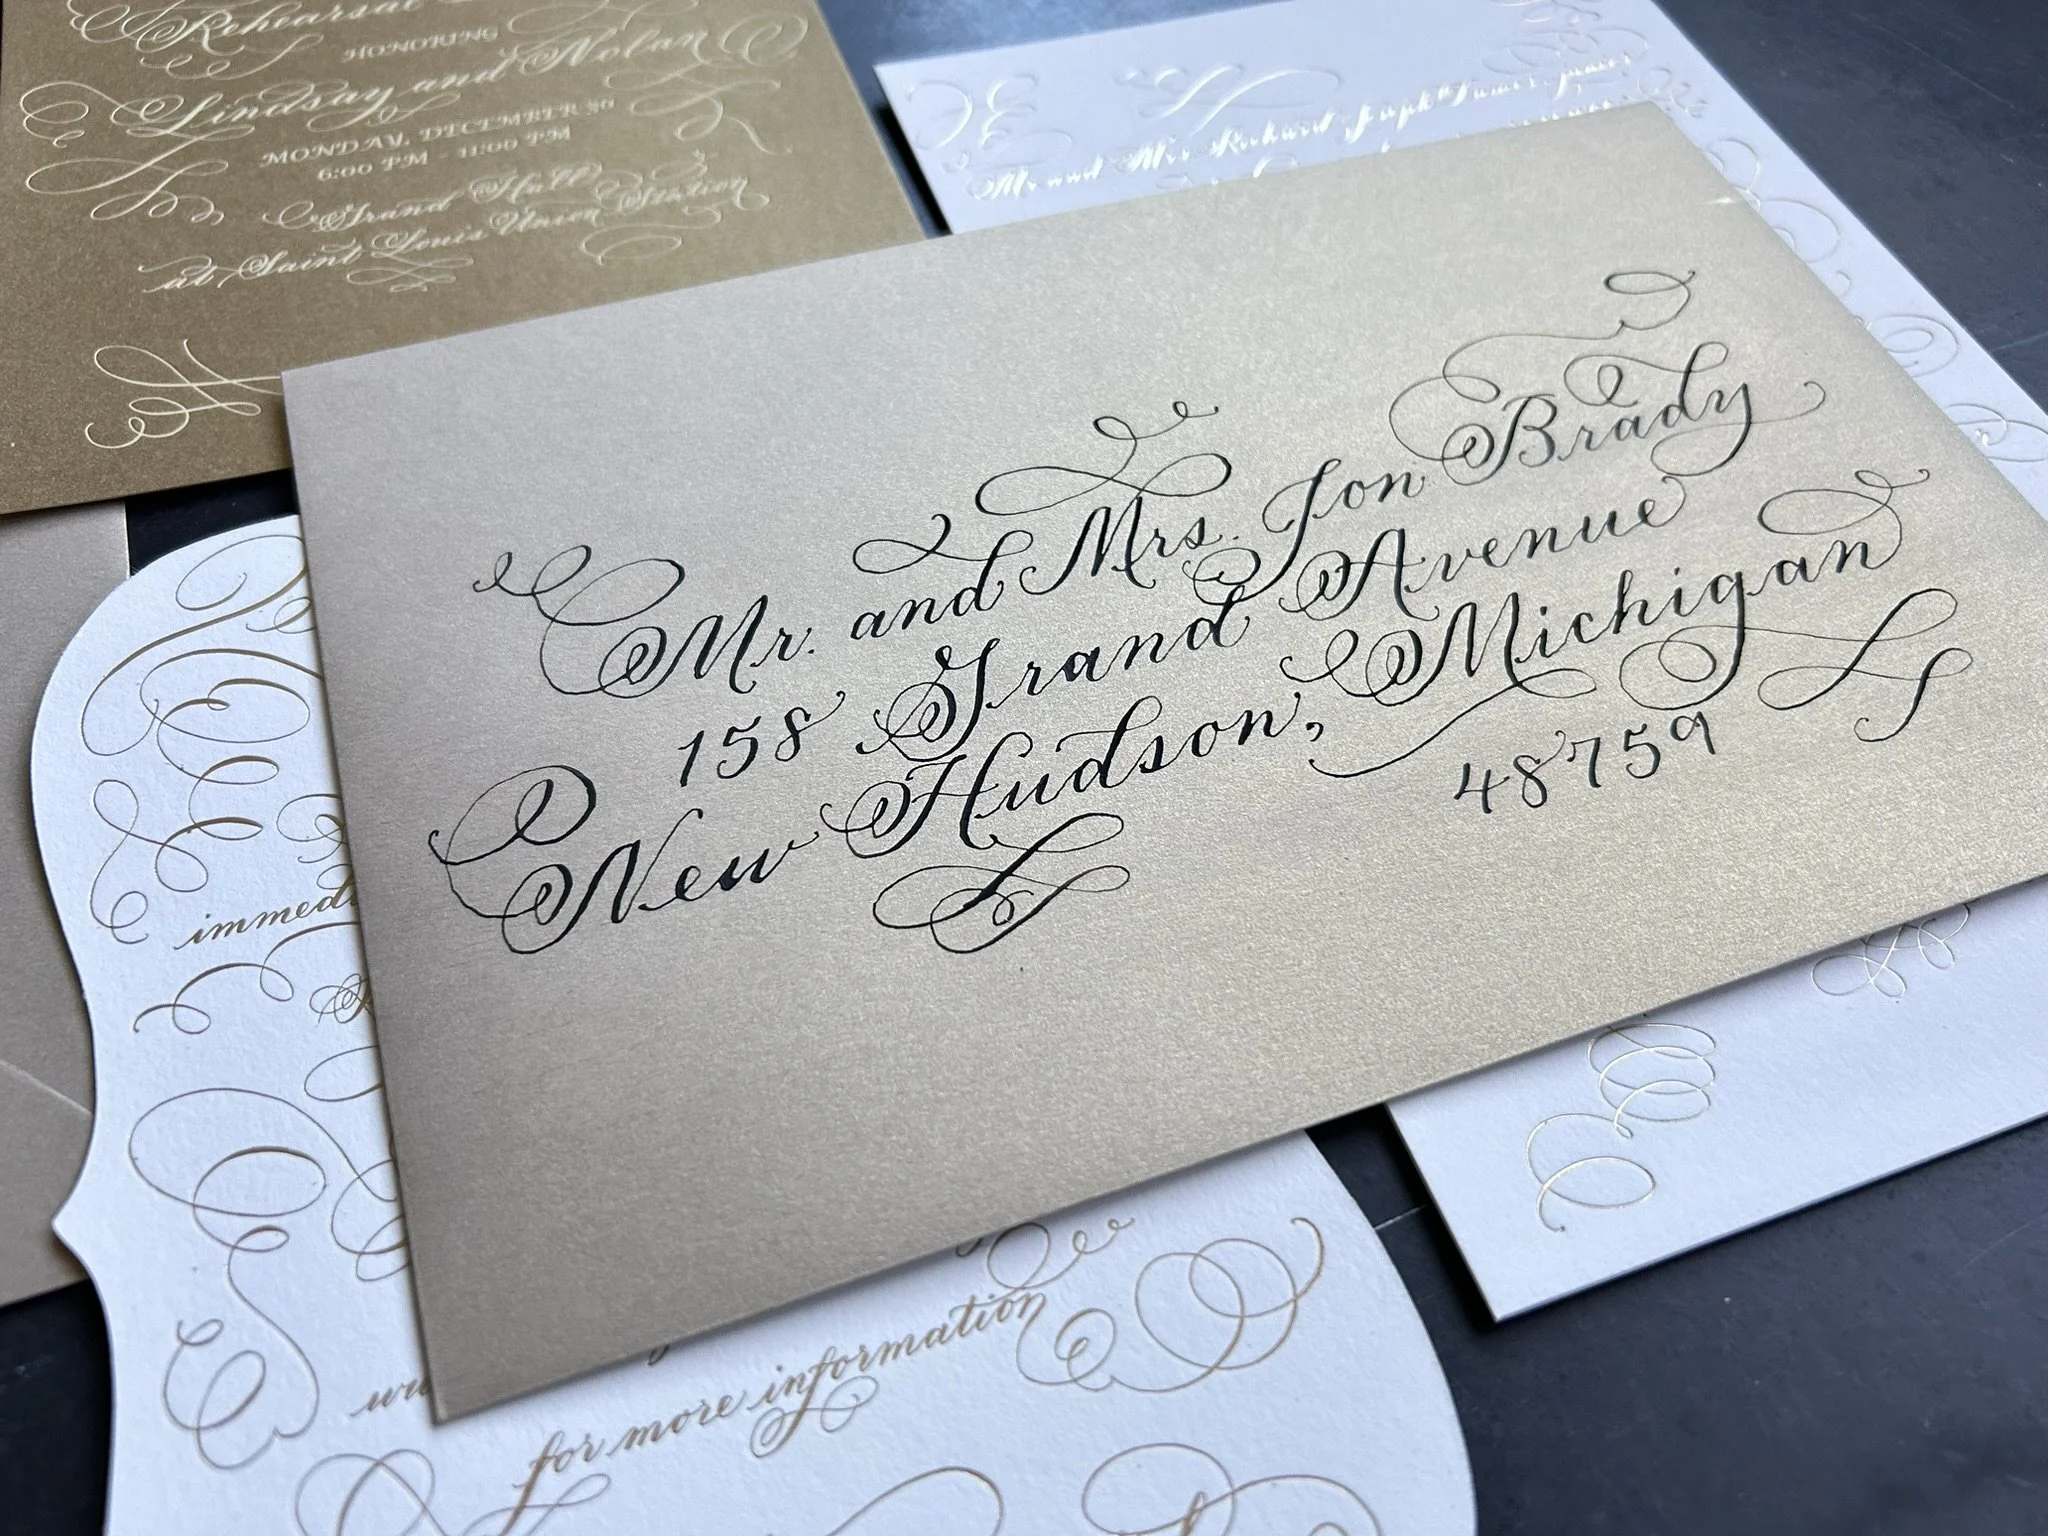 Rehearsal
HONORING
Lindsay and Nolan
MONDAY, DECEMBER 30
6:00 PM - 11:00 PM
Grand Hall
at Saint Louis Union Station
Mr. and Mrs. Richard Joseph
Mr. and Mrs. Jon Brady
158 Grand Avenue
New Hudson, Michigan
48759
for more information